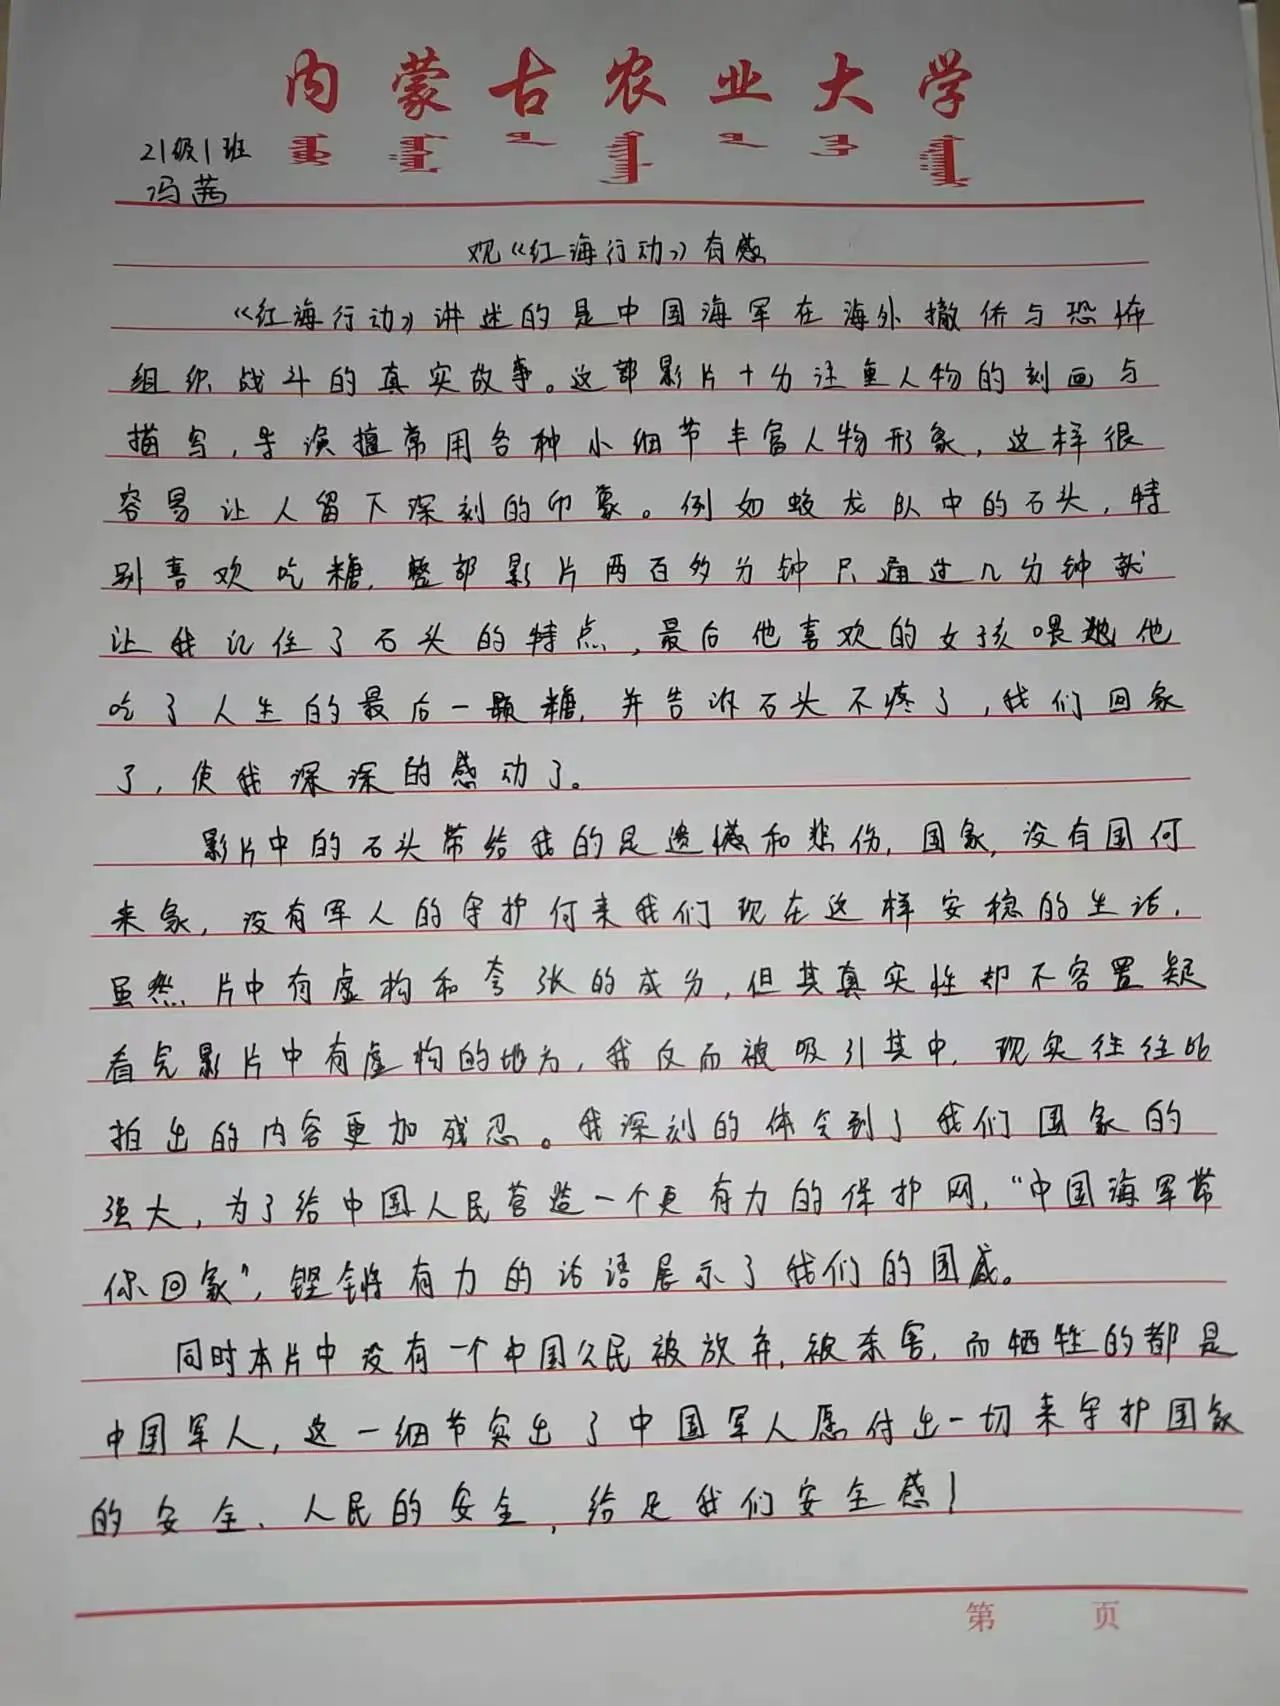 内蒙古农业大学
21级1班
冯茜
观《红海行动》有感
《红海行动》讲述的是中国海军在海外撤侨与恐怖
组织战斗的真实故事。这部影片十分注重人物的刻画与
描写,导演擅常用各种小细节丰富人物形象,这样很
容易让人留下深刻的印象。例如蛟龙队中的石头,特
别喜欢吃糖,整部影片两百多分钟只通过几分钟就
让我记住了石头的特点,最后他喜欢的女孩喂他
吃了人生的最后一颗糖,并告诉石头不疼了,我们回家
了,使我深深的感动了。
影片中的石头带给我的是遗憾和悲伤,国家,没有国何
来家,没有军人的守护何来我们现在这样安稳的生活,
虽然片中有虚构和夸张的成分,但其真实性却不容置疑
看完影片中有虚构的地方,我反而被吸引其中,现实往往比
拍出的内容更加残忍。我深刻的体会到了我们国家的
强大,为了给中国人民营造一个更有力的保护网,“中国海军带
你回家”,铿锵有力的话语展示了我们的国威。
同时本片中没有一个中国公民被放弃,被杀害,而牺牲的都是
中国军人,这一细节突出了中国军人愿付出一切来守护国家
的安全、人民的安全,给足我们安全感!
第 页